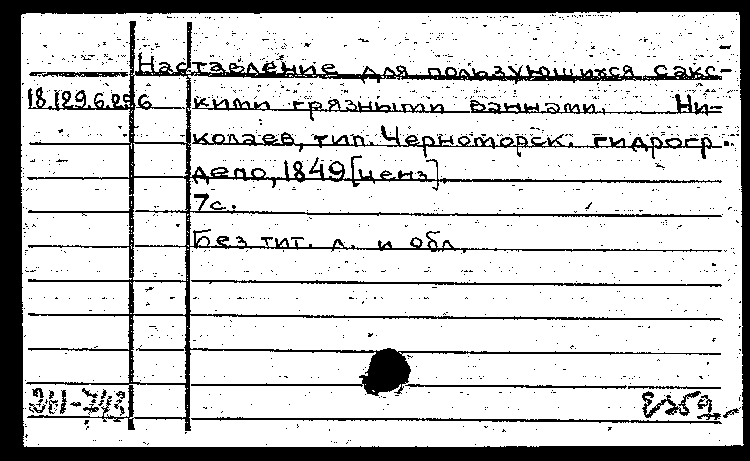 Наставление для пользующихся сакс-
18.129.6.256 кими грязными ваннами. Ни-
колаев, тип. Черноморск. гидрогр.
депо, 1849 [ценз].
7с.
Без тит. л. и обл.
261-743